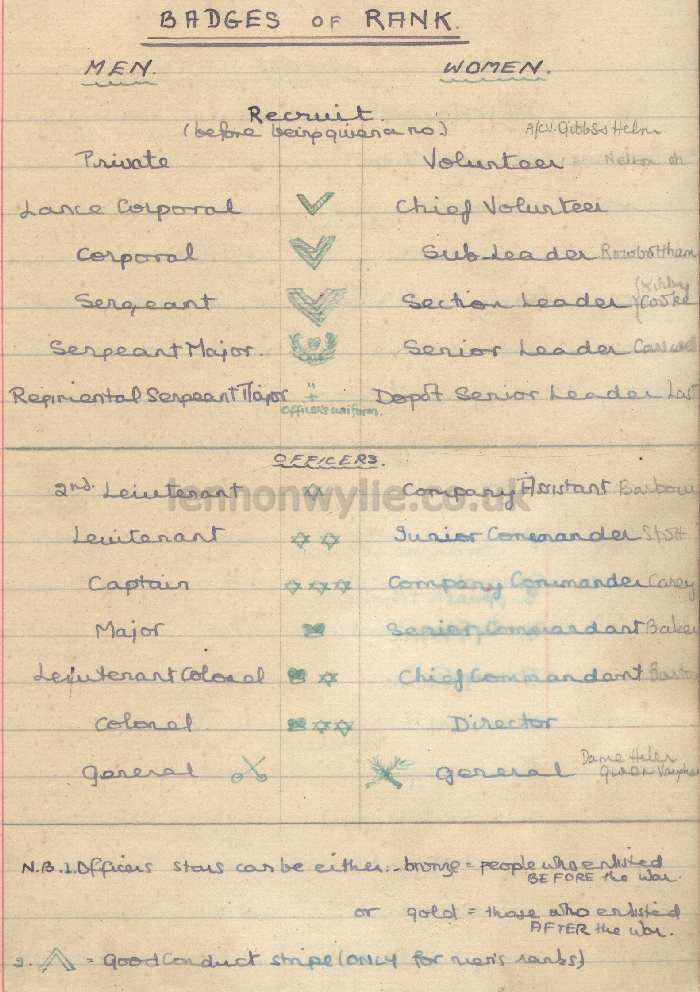 BADGES OF RANK.
MEN. WOMEN.
Recruit.
(before being given a no.) A/CV. Gibbs Helm.
Private Volunteer Nelson
Lance Corporal Chief Volunteer
Corporal Sub-Leader Rowbottham
Sergeant Section Leader (Kirby
Cooke
Sergeant Major. Senior Leader
Regimental Sergeant Major " + Depôt Senior Leader Last
Officer's uniform.
OFFICERS.
2nd. Leiutenant Company Assistant Barbour
lennonwylie.co.uk
Leiutenant Junior Commander Stott
Captain Company Commander Carey
Major Senior Commandant Baker
Leiutenant Colonel Chief Commandant
Colonel Director
General General Dame Helen
Gwen Vaughan
N.B. 1. Officers stars can be either:- bronze = people who enlisted
BEFORE the war.
or gold = those who enlisted
AFTER the war.
2. = Good Conduct stripe (ONLY for men's ranks)